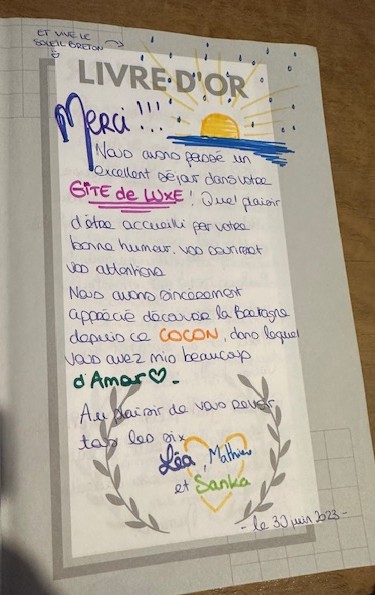 ET VIVE LE
SOLEIL BRETON
LIVRE D'OR
Merci!!!
Nous avons passé un
excellent séjour dans votre
GîTE de LUXE! Quel plaisir
d'être accueilli par votre
bonne humeur, vos sourires et
vos attentions.
Nous avons sincèrement
apprécié découvrir la Bretagne
depuis ce COCON, dans lequel
vous avez mis beaucoup
d'Amor♡.
Au plaisir de vous revoir
tous les six
Léa, Mathieu
et Sanka
- le 30 juin 2023 -